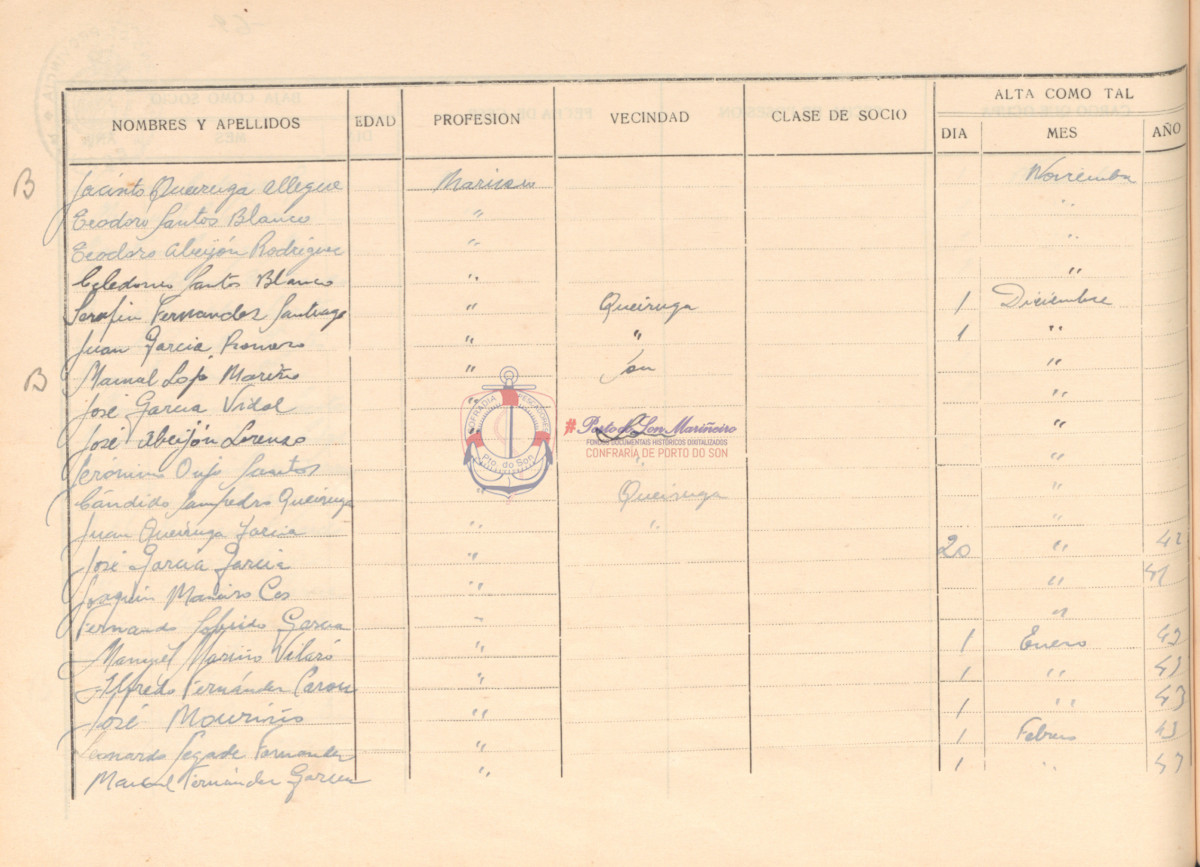 ALTA COMO TAL
NOMBRES Y APELLIDOS EDAD PROFESION VECINDAD CLASE DE SOCIO DIA MES AÑO
B Jacinto Queiruga Allegue Marinero Noviembre
Teodoro Santos Blanco " "
Teodoro Abeijón Rodrigue " "
Celedonio Santos Blanco " "
Serafin Fernandez Santiago " Queiruga 1 Diciembre
Juan Garcia Romero " " 1 "
B Manuel Lojo Mariño " Son "
José Garcia Vidal " "
José Abeijón Lorenzo " "
Jerónimo Oujo Santos " "
Cándido Sampedro Queiruga " Queiruga "
Juan Queiruga Garcia " " "
José Garcia Garcia " 20 " 42
Joaquin Maneiro Ces " "
Fernando Garcia " "
Manuel Mariño Vilaró " 1 Enero 43
Alfredo Fernández " 1 " 43
José Mouriño " 1 " 43
Leonardo Segade Fernandez " 1 Febrero 43
Manuel Fernández Garcia " 1 "
COFRADIA PESCADORES
Pto. do Son
#Porto do Son Mariñeiro
FONDOS DOCUMENTAIS HISTÓRICOS DIXITALIZADOS
CONFRARÍA DE PORTO DO SON